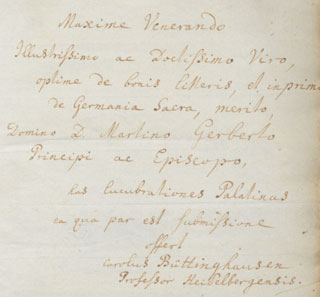 Maxime Venerando
Illustrissimo ac Doctissimo Viro,
optime de bonis litteris, et inprimi
de Germania Sacra, merito,
Domino D. Martino Gerberto
Principi ac Episcopo,
has lucubrationes Palatinas
ea qua par est submissione
offert
Carolus Büttinghausen
Professor Heidelbergensis.